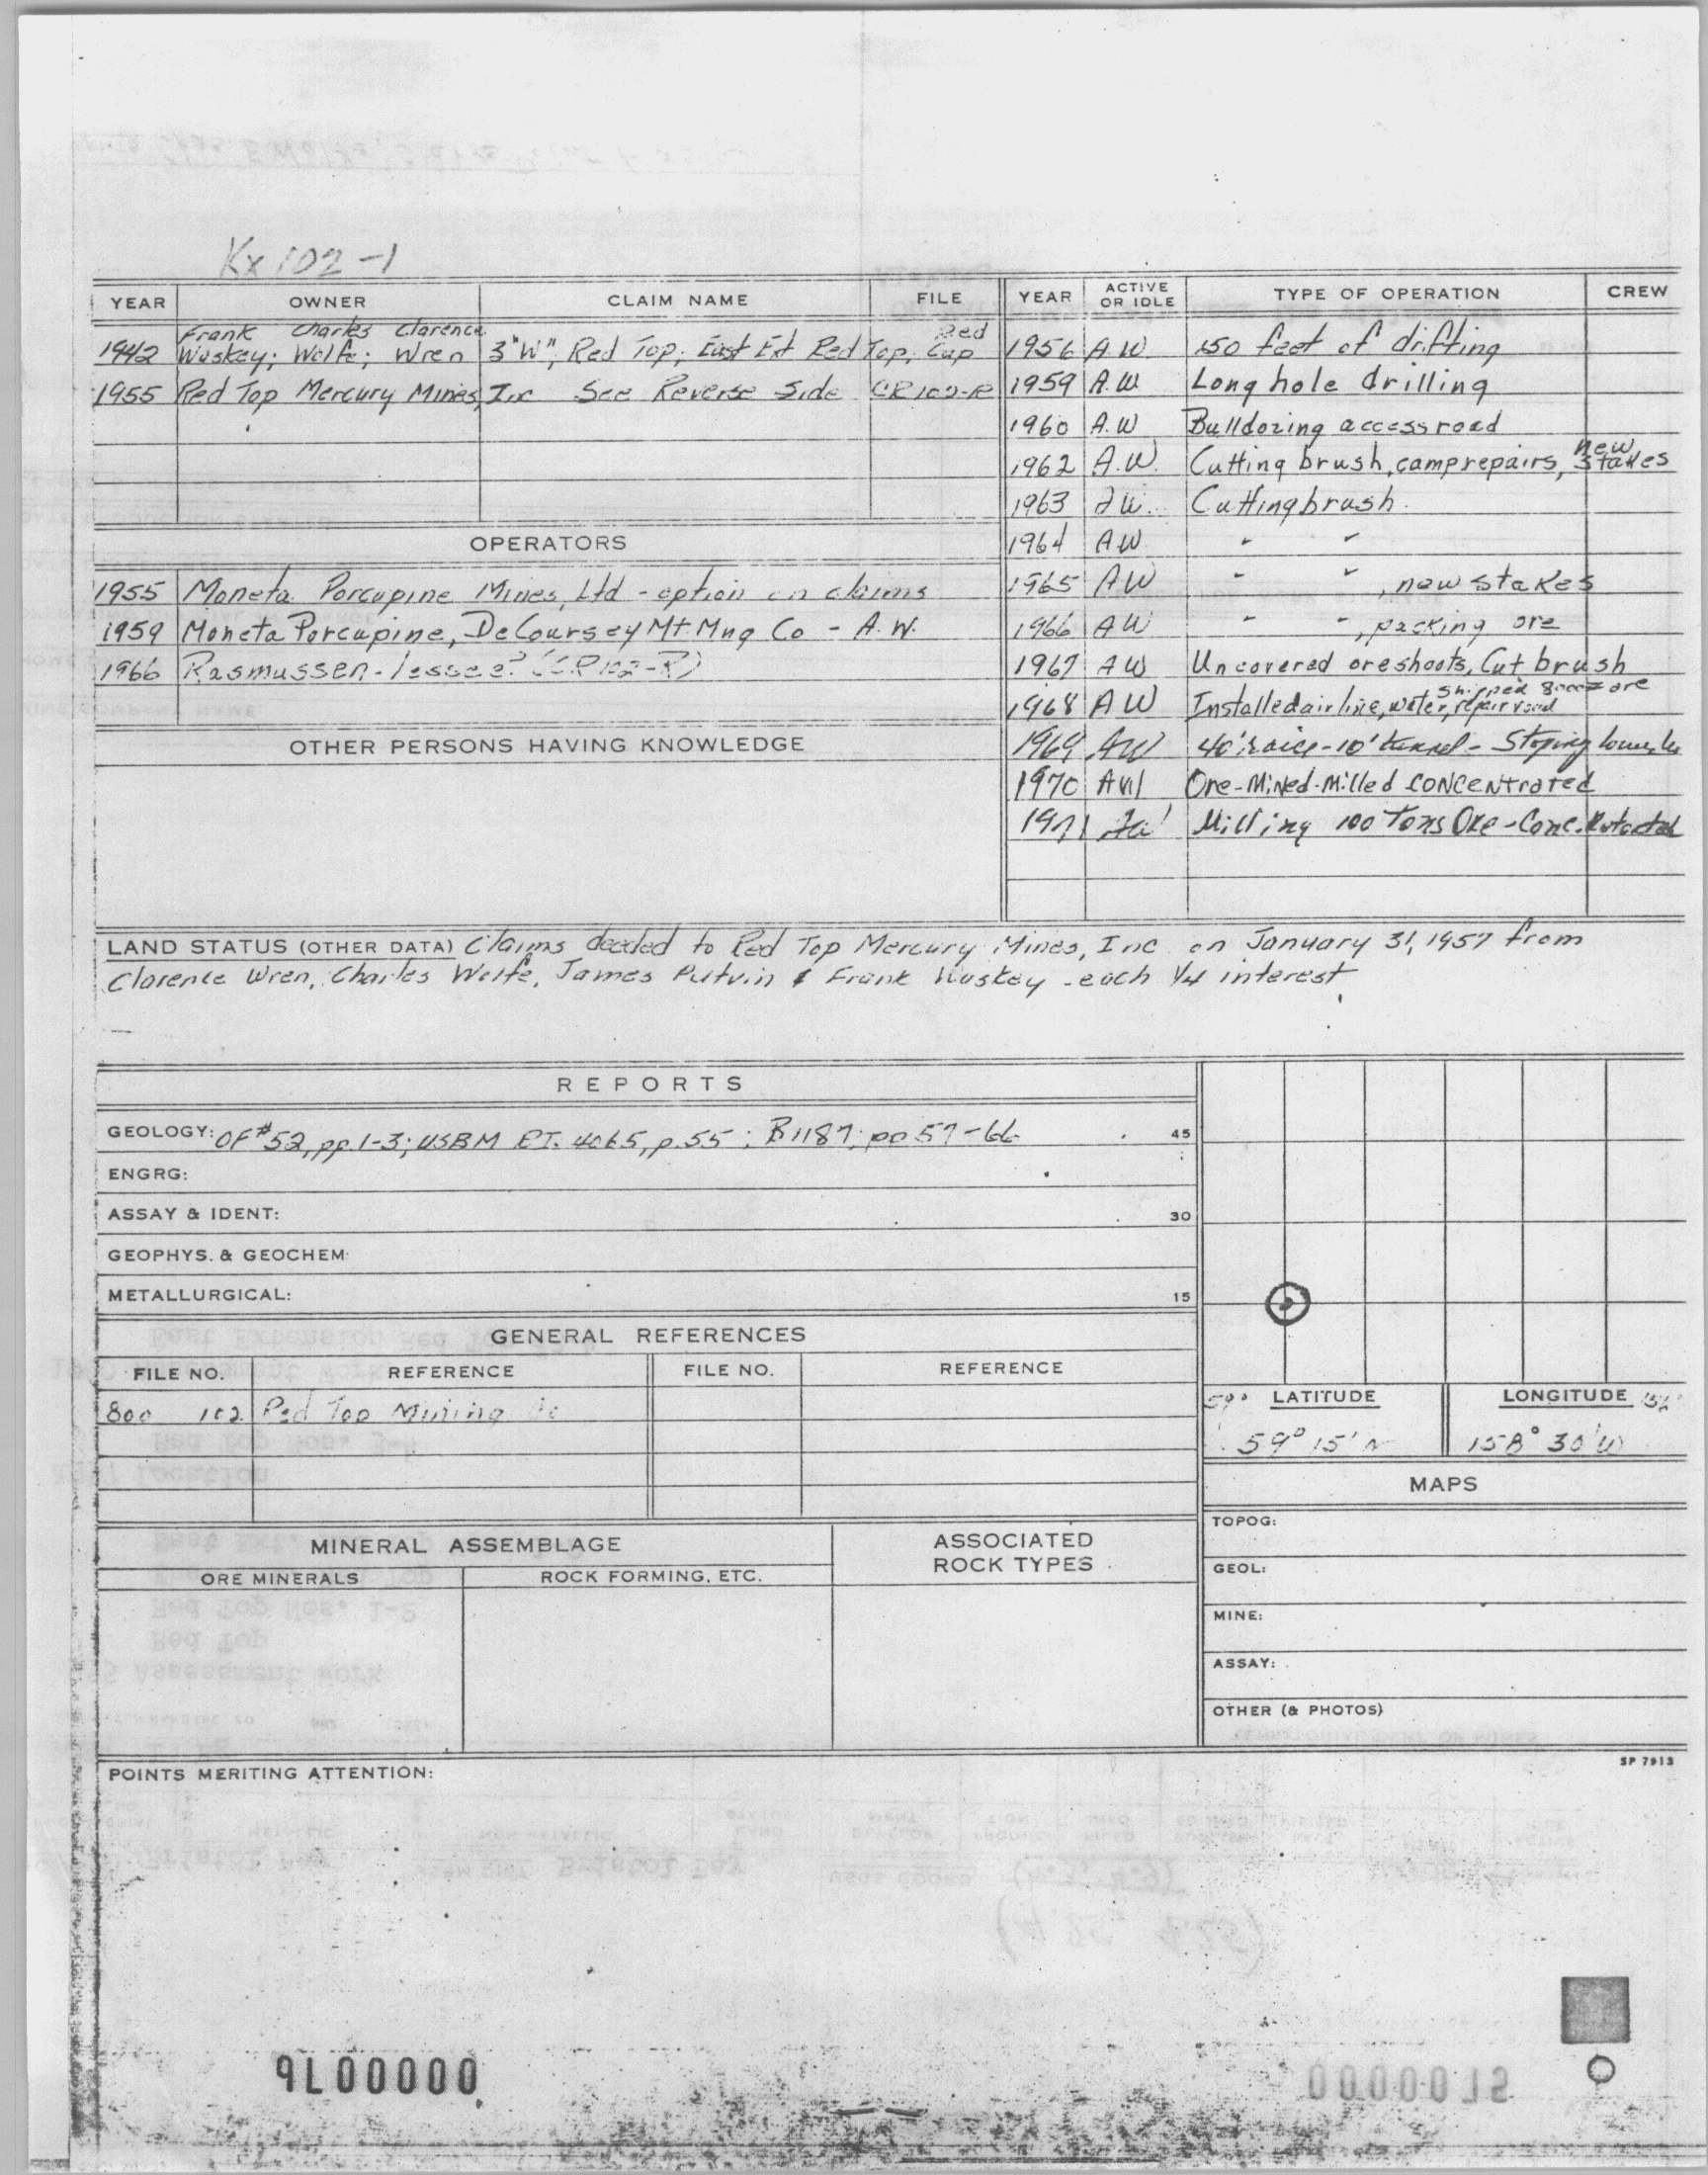 Kx 102-1
YEAR OWNER CLAIM NAME FILE
1942 Frank Waskey; Charles Wolfe; Clarence Wren 3"W", Red Top; East Ext Red Top, Red Cap
1955 Red Top Mercury Mines, Inc See Reverse Side CR102-R
OPERATORS
1955 Moneta Porcupine Mines, Ltd - option on claims
1959 Moneta Porcupine, DeCoursey Mt. Mng Co - A.W.
1966 Rasmussen - lessee? (CR102-R)
OTHER PERSONS HAVING KNOWLEDGE
YEAR ACTIVE OR IDLE TYPE OF OPERATION CREW
1956 A W 150 feet of drifting
1959 A.W. Long hole drilling
1960 A.W Bulldozing access road
1962 A.W. Cutting brush, camp repairs, new stakes
1963 AW. Cutting brush.
1964 AW " "
1965 AW " ", new stakes
1966 AW " ", packing ore
1967 AW Uncovered oreshoots, Cut brush
1968 AW Installed air line, water, repair road shipped ore
1969 AW 40' raise - 10' tunnel - Stoping
1970 AW Ore-Mined-Milled CONCENTRATED
1971 Milling 100 Tons Ore - Conc. Retorted
LAND STATUS (OTHER DATA) Claims deeded to Red Top Mercury Mines, Inc on January 31, 1957 from
Clarence Wren, Charles Wolfe, James Putvin & Frank Waskey - each 1/4 interest
REPORTS
GEOLOGY: OF #52, pp. 1-3; USBM R.I. 4065, p. 55; B1187; pp 57-66
45
ENGRG:
ASSAY & IDENT:
30
GEOPHYS. & GEOCHEM:
METALLURGICAL:
15
GENERAL REFERENCES
FILE NO. REFERENCE FILE NO. REFERENCE
800 102 Red Top Mining Co
59° LATITUDE LONGITUDE
59° 15' N 158° 30' W
MAPS
TOPOG:
GEOL:
MINE:
ASSAY:
OTHER (& PHOTOS)
MINERAL ASSEMBLAGE ASSOCIATED ROCK TYPES
ORE MINERALS ROCK FORMING, ETC.
SP 7913
POINTS MERITING ATTENTION: